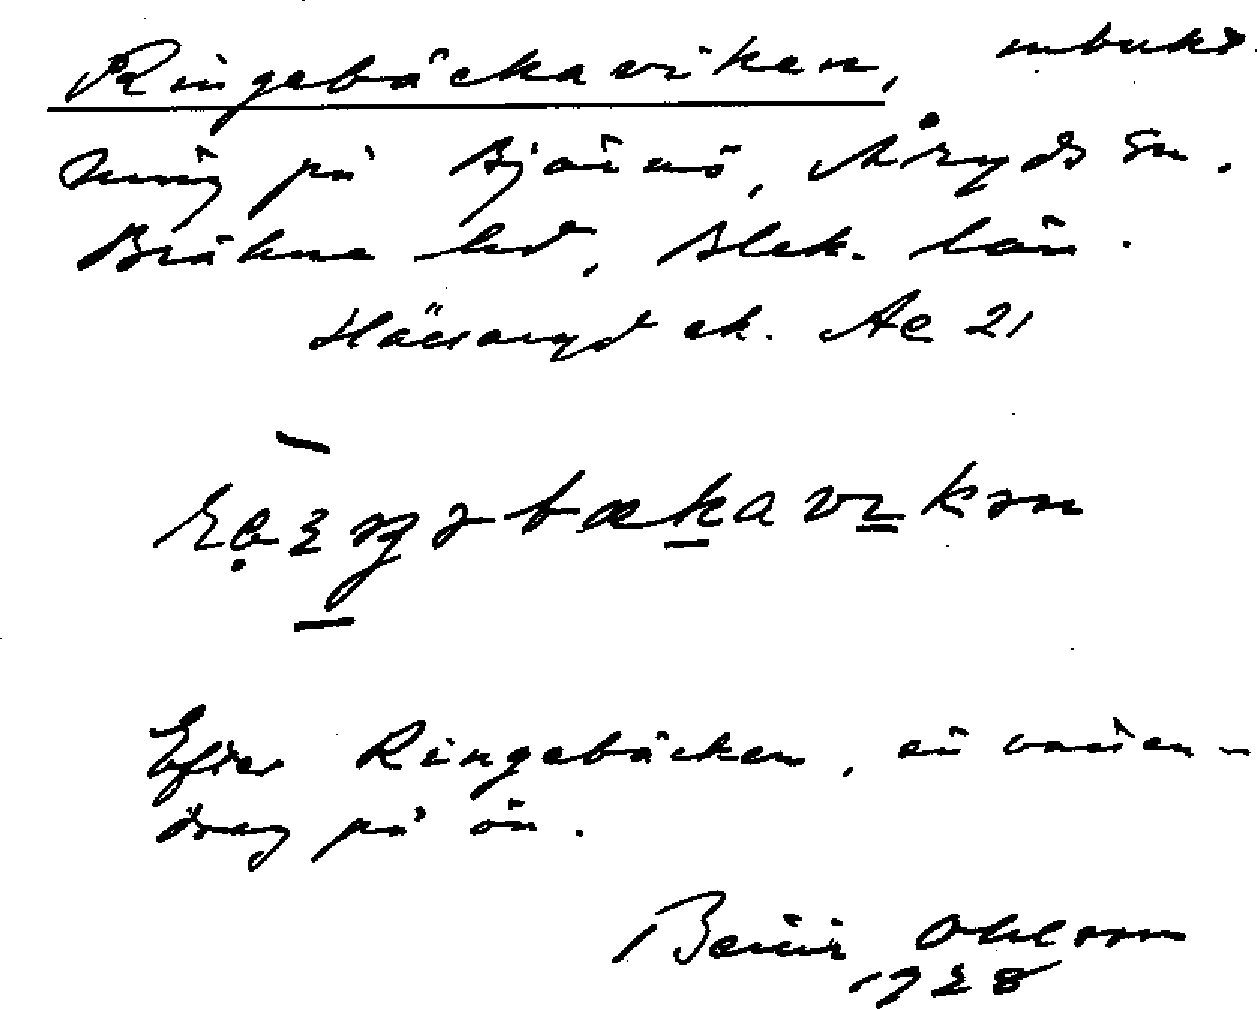 Ringebäckaviken, inbukt-
ning på Björnö, Åryds sn.
Bräkne hd, Blek. län.
Hällaryd ek. Ae 21
Efter Ringebäcken, ett vatten-
drag på ön.
Bertil Ohlsson
1928